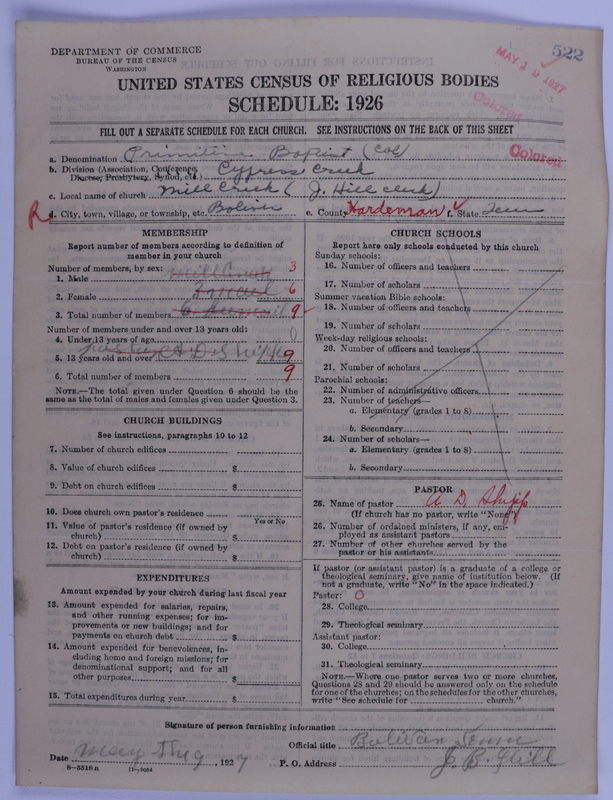 522
MAY 19 1927
Colored
DEPARTMENT OF COMMERCE
BUREAU OF THE CENSUS
WASHINGTON
UNITED STATES CENSUS OF RELIGIOUS BODIES
SCHEDULE: 1926
FILL OUT A SEPARATE SCHEDULE FOR EACH CHURCH. SEE INSTRUCTIONS ON THE BACK OF THIS SHEET
Colored
a. Denomination Primitive Baptist (Col)
b. Division (Association, Conference, Diocese, Presbytery, Synod, etc.) Cypress Creek
c. Local name of church Mill Creek ( J. Hill clerk)
R d. City, town, village, or township, etc. Bolivar e. County Hardeman f. State Tenn
MEMBERSHIP
Report number of members according to definition of member in your church
Number of members, by sex:
1. Male 3
2. Female 6
3. Total number of members 9
Number of members under and over 13 years old:
4. Under 13 years of age 0
5. 13 years old and over 9
6. Total number of members 9
NOTE.—The total given under Question 6 should be the same as the total of males and females given under Question 3.
CHURCH BUILDINGS
See instructions, paragraphs 10 to 12
7. Number of church edifices
8. Value of church edifices $
9. Debt on church edifices $
10. Does church own pastor's residence
Yes or No
11. Value of pastor's residence (if owned by church) $
12. Debt on pastor's residence (if owned by church) $
EXPENDITURES
Amount expended by your church during last fiscal year
13. Amount expended for salaries, repairs, and other running expenses; for improvements or new buildings; and for payments on church debt $
14. Amount expended for benevolences, including home and foreign missions; for denominational support; and for all other purposes $
15. Total expenditures during year $
CHURCH SCHOOLS
Report here only schools conducted by this church
Sunday schools:
16. Number of officers and teachers
17. Number of scholars
Summer vacation Bible schools:
18. Number of officers and teachers
19. Number of scholars
Week-day religious schools:
20. Number of officers and teachers
21. Number of scholars
Parochial schools:
22. Number of administrative officers
23. Number of teachers—
a. Elementary (grades 1 to 8)
b. Secondary
24. Number of scholars—
a. Elementary (grades 1 to 8)
b. Secondary
PASTOR
25. Name of pastor A D Shipp
(If church has no pastor, write "None")
26. Number of ordained ministers, if any, employed as assistant pastors
27. Number of other churches served by the pastor or his assistants
If pastor (or assistant pastor) is a graduate of a college or theological seminary, give name of institution below. (If not a graduate, write "No" in the space indicated.)
Pastor: 0
28. College
29. Theological seminary
Assistant pastor:
30. College
31. Theological seminary
NOTE.—Where one pastor serves two or more churches, Questions 28 and 29 should be answered only on the schedule for one of the churches; on the schedules for the other churches, write "See schedule for church."
Signature of person furnishing information
Official title Bolivar Tenn
Date May the 9, 1927 P. O. Address J. B. Hill
8—5518 a